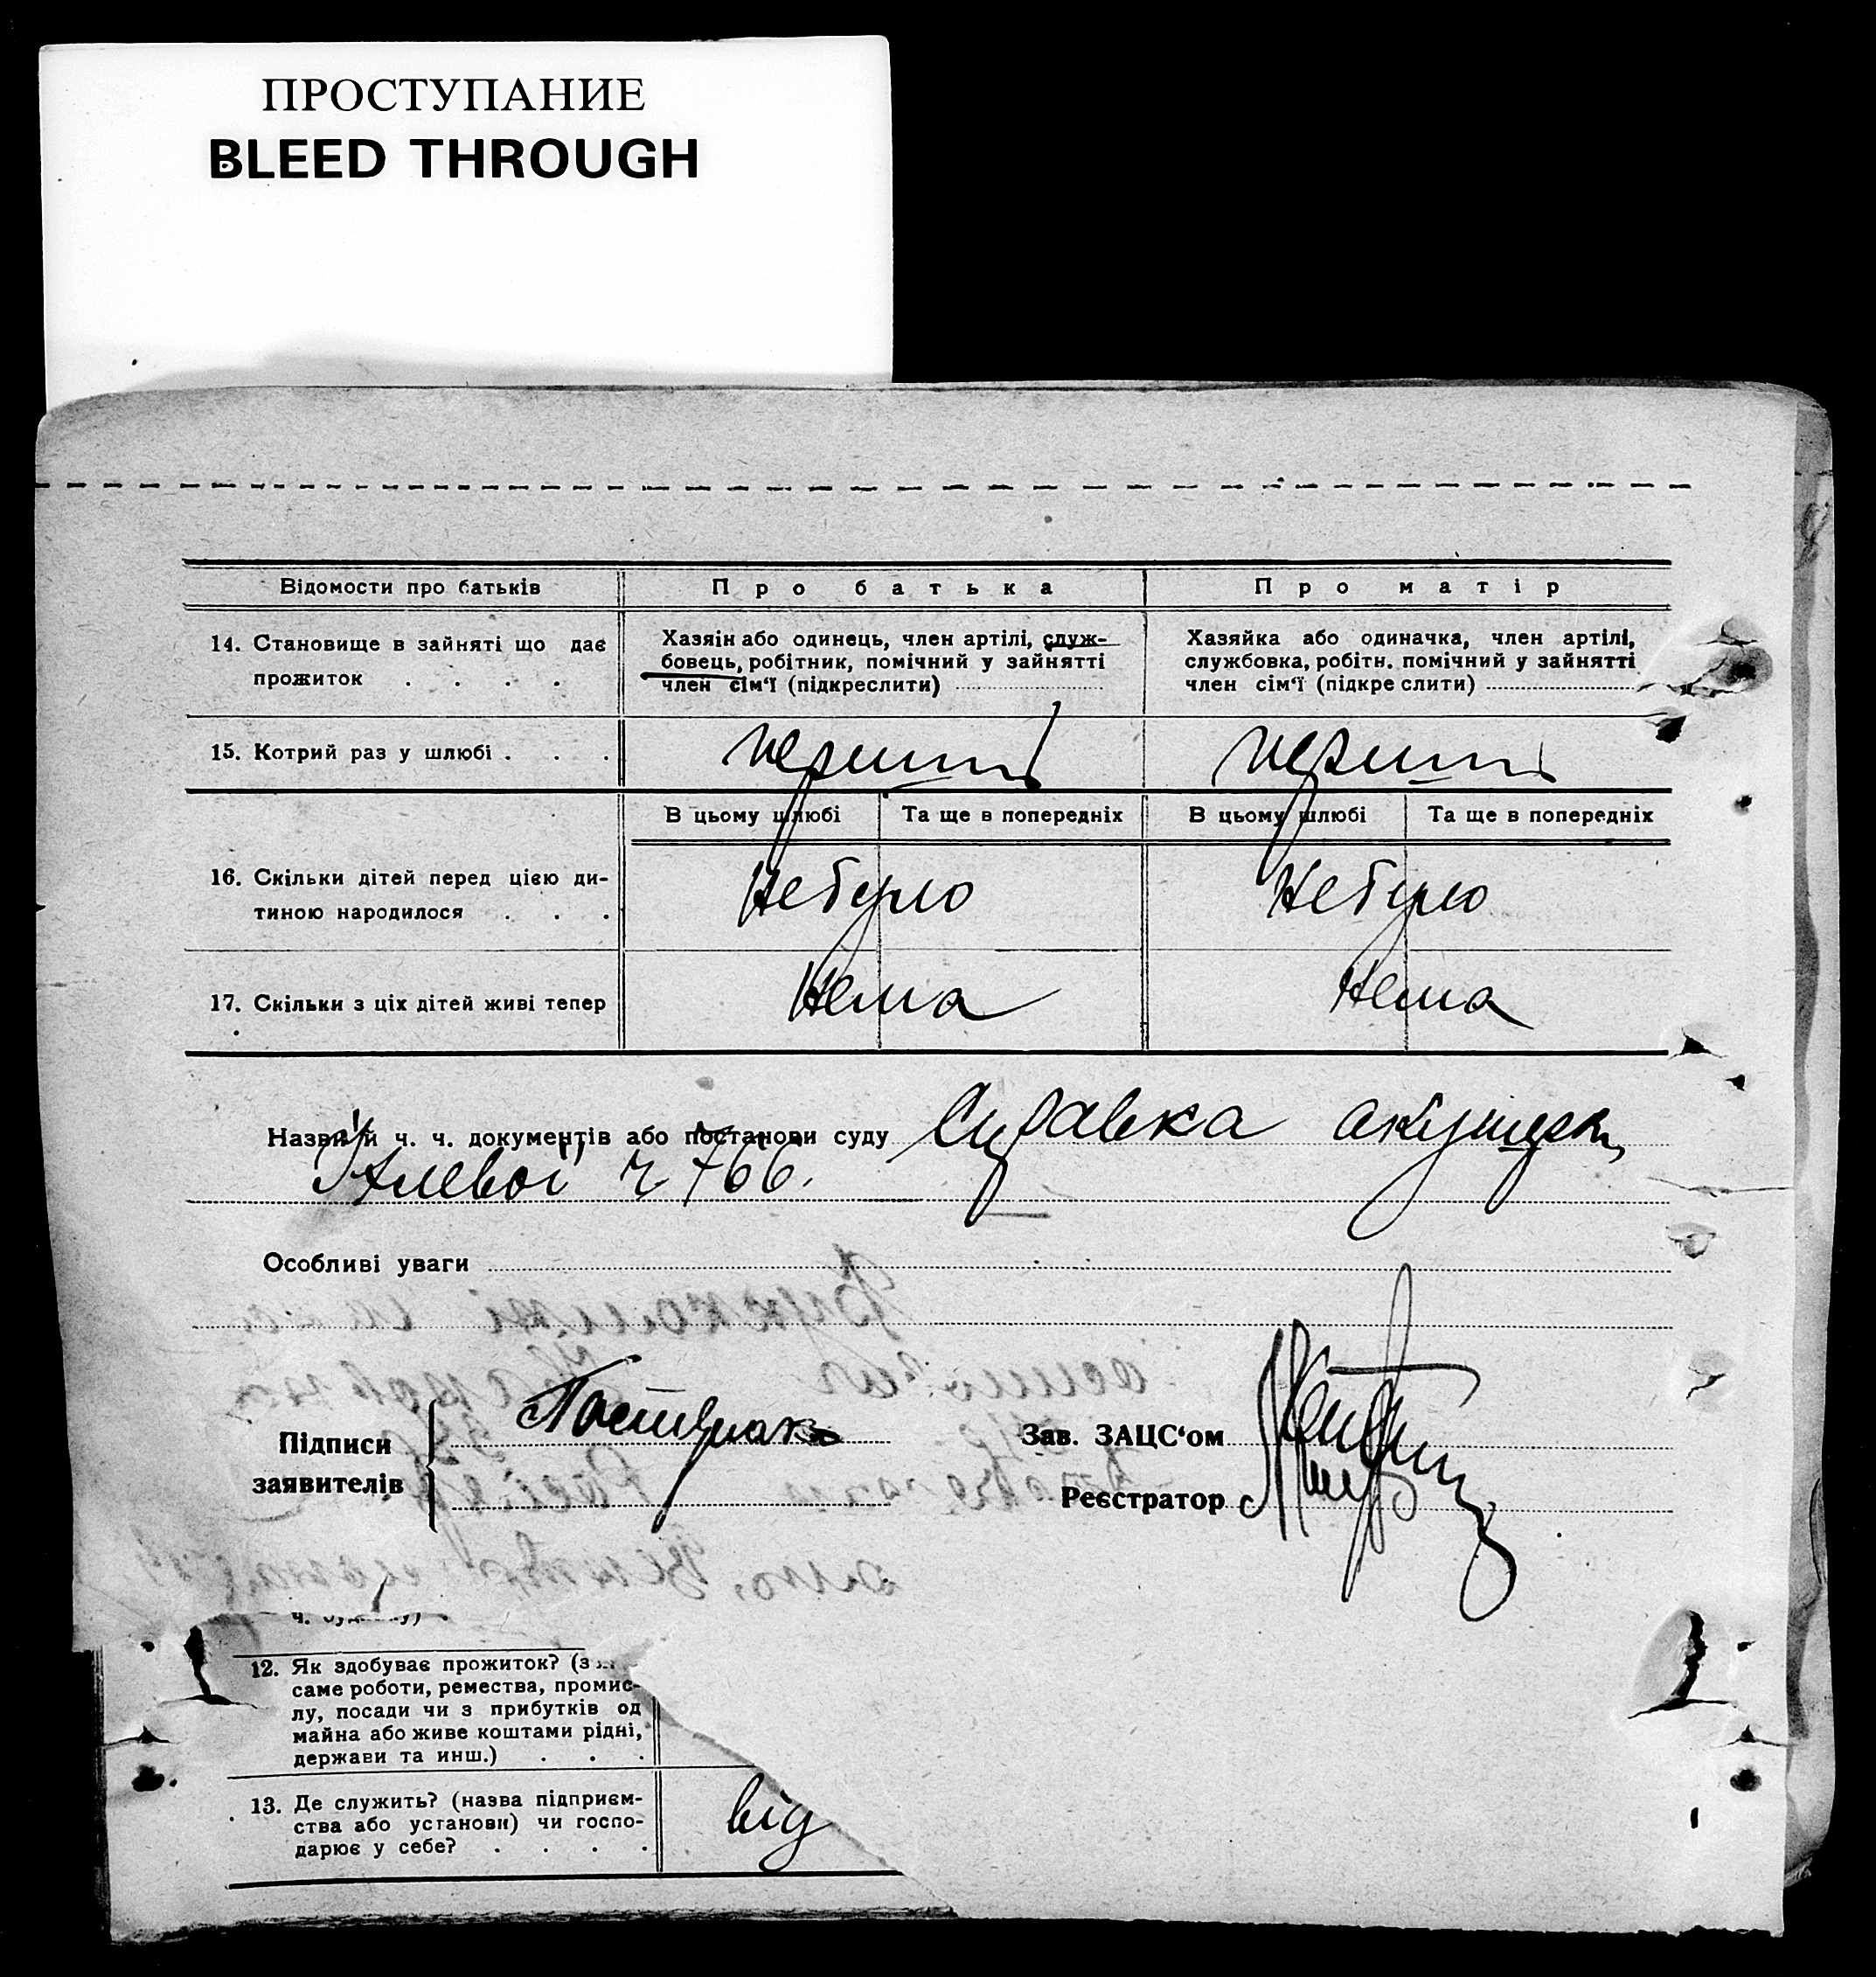 ПРОСТУПАНИЕ
BLEED THROUGH
Відомости про батьків
Про батька
Про матір
14. Становище в зайняті що дає
прожиток . . . .
Хазяїн або одинець, член артілі, служ-
бовець, робітник, помічний у зайнятті
член сім‘ї (підкреслити)
Хазяйка або одиначка, член артілі,
службовка, робітн. помічний у зайнятті
член сім‘ї (підкреслити)
15. Котрий раз у шлюбі . . .
перший
перший
В цьому шлюбі
Та ще в попередніх
В цьому шлюбі
Та ще в попередніх
16. Скільки дітей перед цією ди-
тиною народилося . . .
Не було
Не було
17. Скільки з ціх дітей живі тепер
Нема
Нема
Назви й ч. ч. документів або постанови суду Справка акушерки
ч 766.
Особливі уваги
Підписи
заявителів
Зав. ЗАЦС‘ом
Реєстратор
ч. будинку)
12. Як здобуває прожиток? (з
саме роботи, ремества, промис-
лу, посади чи з прибутків од
майна або живе коштами рідні,
держави та инш.) . . .
13. Де служить? (назва підприєм-
ства або установи) чи госпо-
дарює у себе? . . . .
від